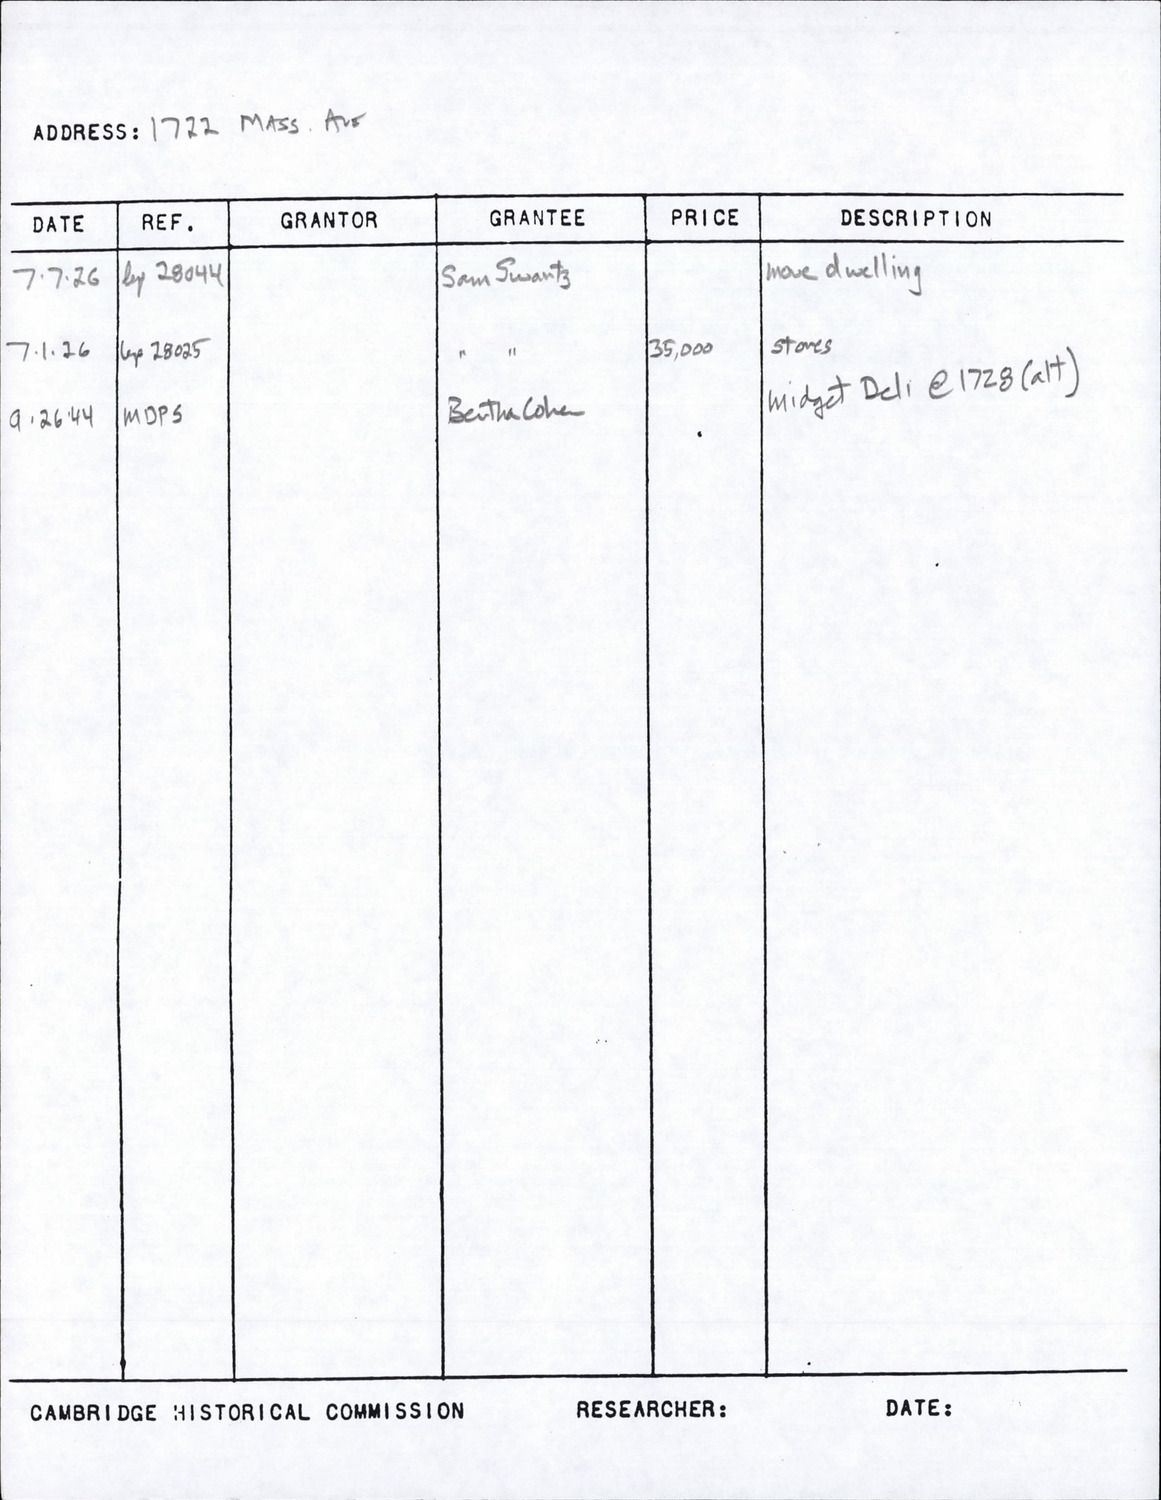 ADDRESS: 1722 MASS. Ave
DATE REF. GRANTOR GRANTEE PRICE DESCRIPTION
7.7.26 bp 28044 Sam Swartz move dwelling
7.1.26 bp 28025 " " 35,000 stores
9.26.44 MDPS Bertha Cohen midget Deli @ 1728 (alt)
CAMBRIDGE HISTORICAL COMMISSION RESEARCHER: DATE: